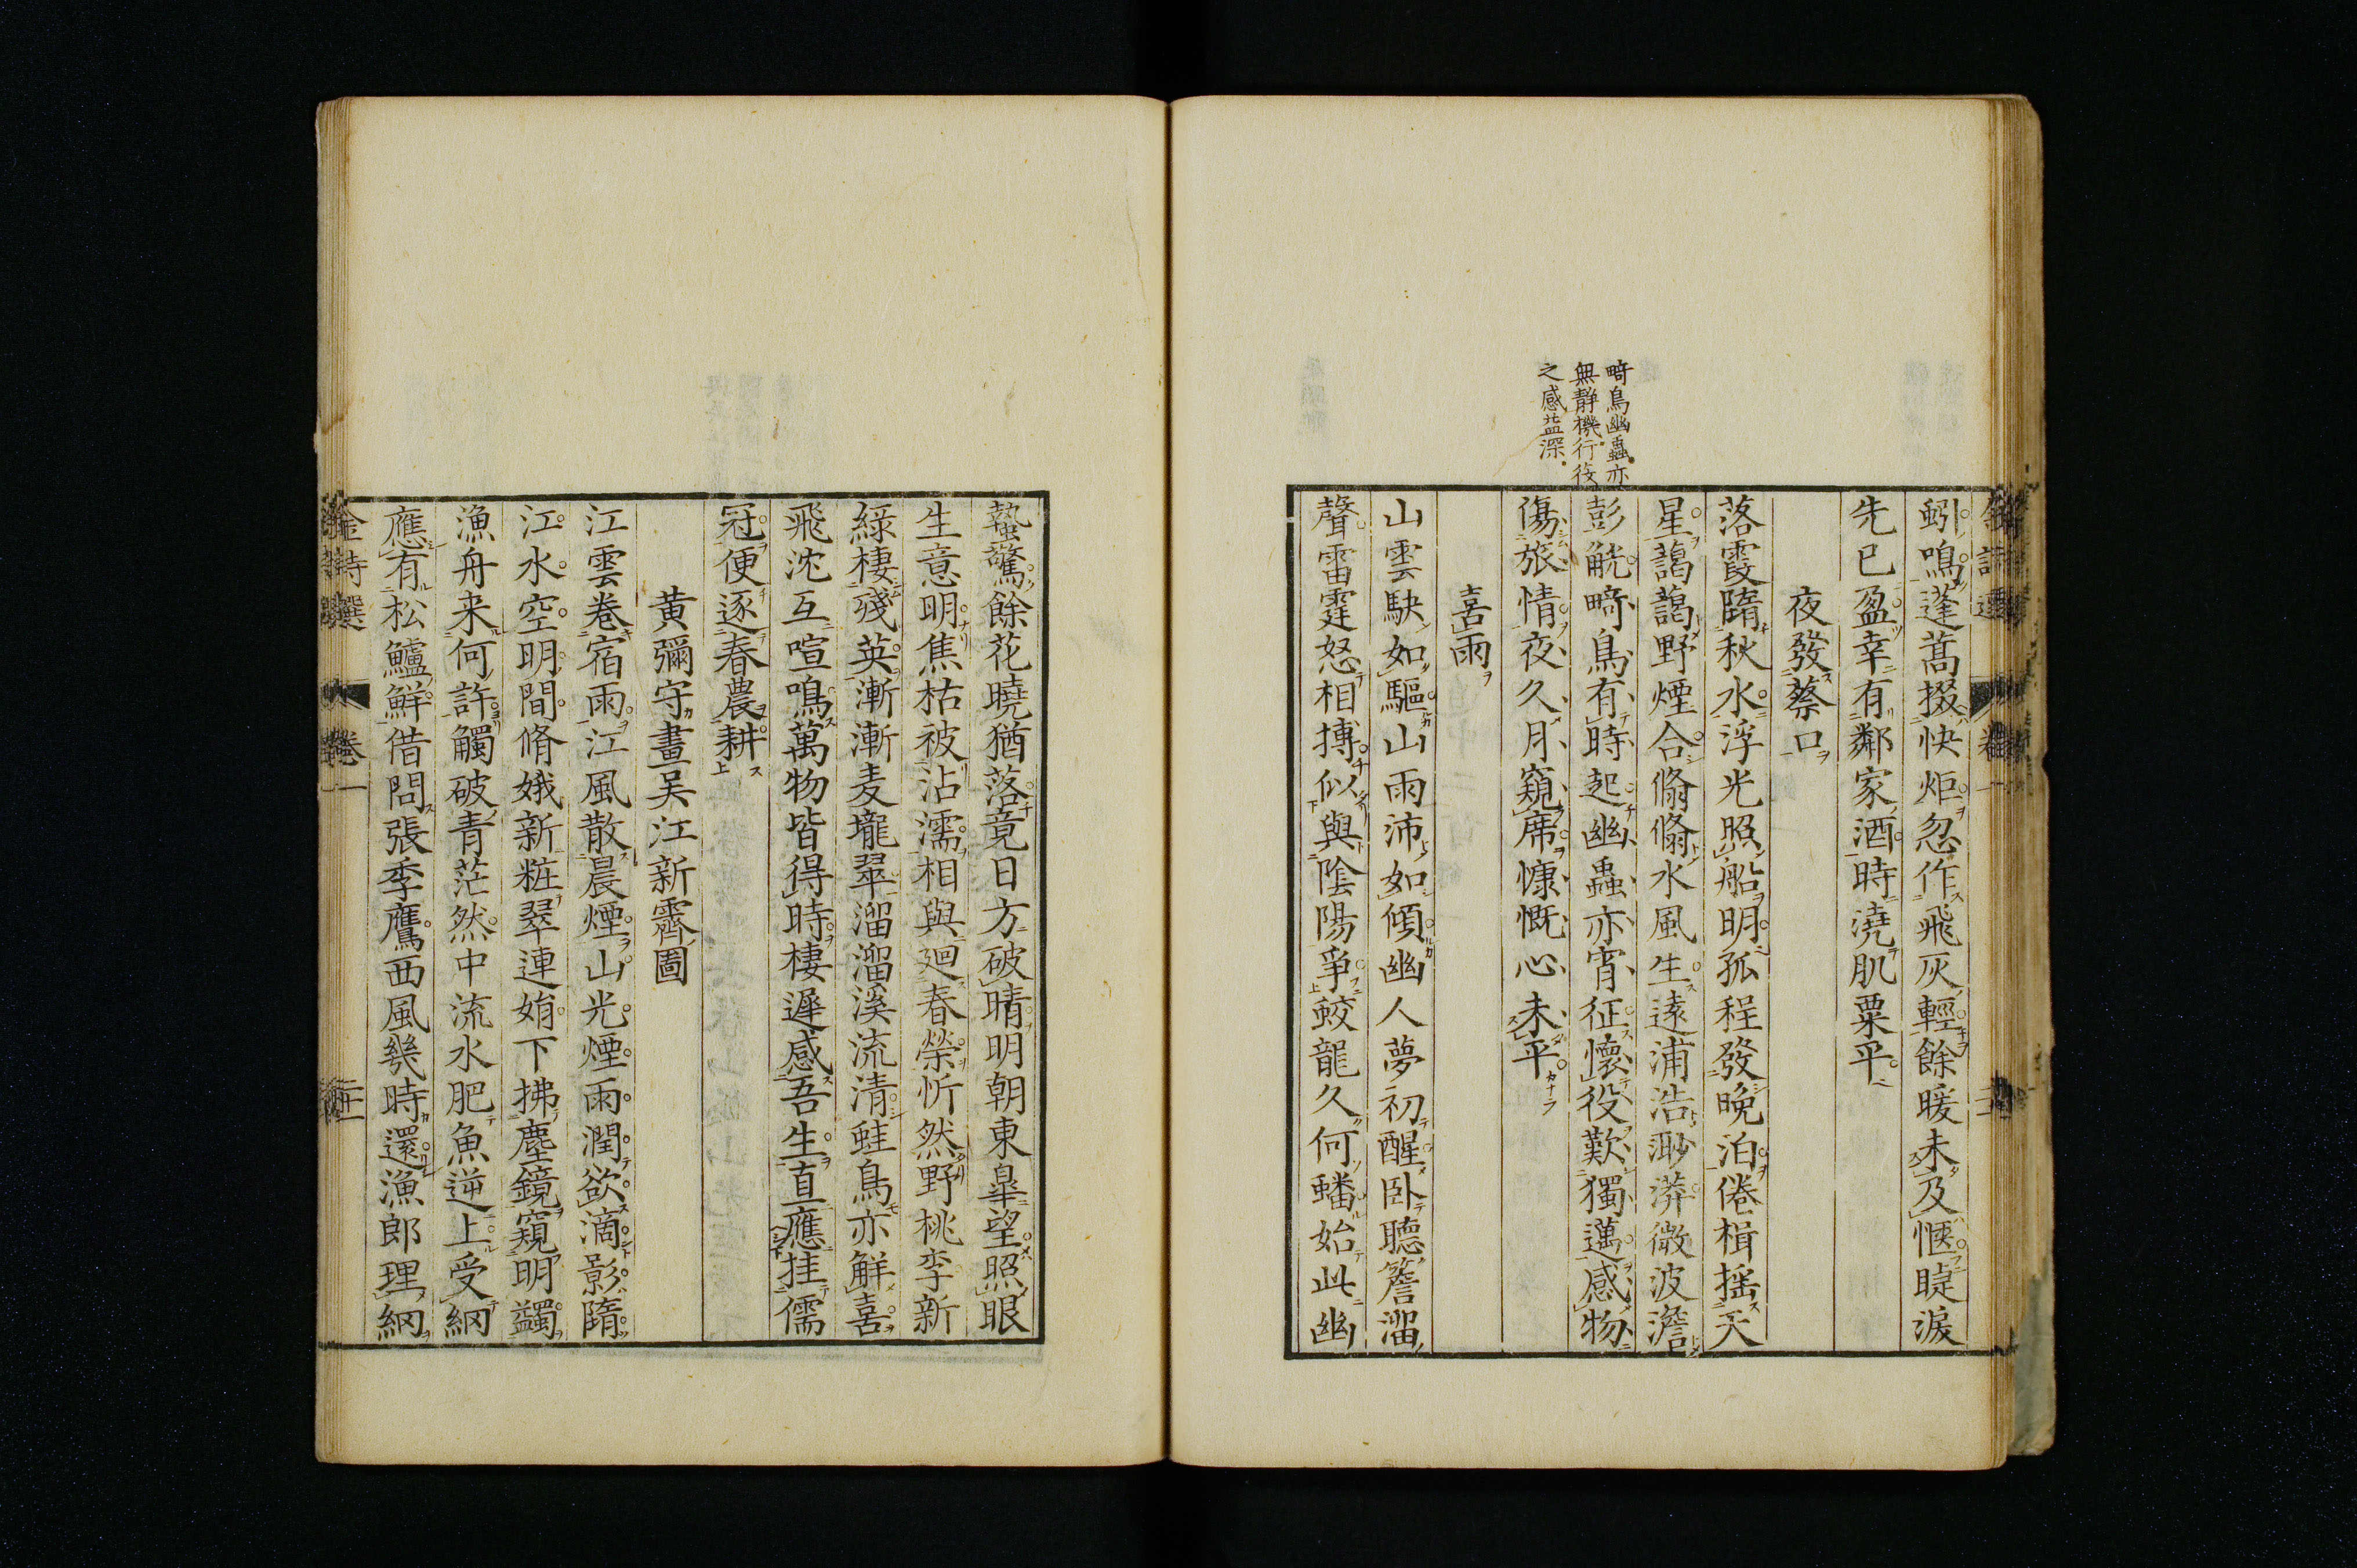 蚓鳴蓬蒿掇快炬忽作飛灰輕餘暖未及愜睫淚
先已盈幸有鄰家酒時澆肌粟平
夜發蔡口
落霞隋秋水浮光照船明孤程發晚泊倦楫摇天
星藹藹野煙合翛翛水風生遠浦浩渺漭微波澹
彭觥畸鳥有時起幽蟲亦宵征懷役歎獨邁感物
傷旅情夜久月窺席慷慨心未平
畸鳥幽蟲亦
無靜機行役
之感益深
喜雨
山雲駃如驅山雨沛如傾幽人夢初醒卧聽簷溜
聲雷霆怒相搏似與陰陽爭蛟龍久何蟠始此幽
蟄驚餘花曉猶落竟日方破晴明朝東皐望照眼
生意明焦枯被沾濡相與迴春榮忻然野桃李新
緑棲殘英漸漸麦壠翠溜溜溪流清蛙鳥亦解喜
飛沈互喧鳴萬物皆得時棲遲感吾生直應挂儒
冠便逐春農耕
黄彌守畫吴江新霽圖
江雲卷宿雨江風散晨煙山光煙雨潤欲滴影隋
江水空明間脩娥新粧翠連娟下拂塵鏡窺明蠲
漁舟来何許觸破青茫然中流水肥魚逆上受網
應有松鱸鮮借問張季鷹西風幾時還漁郎理網
金詩選 卷一